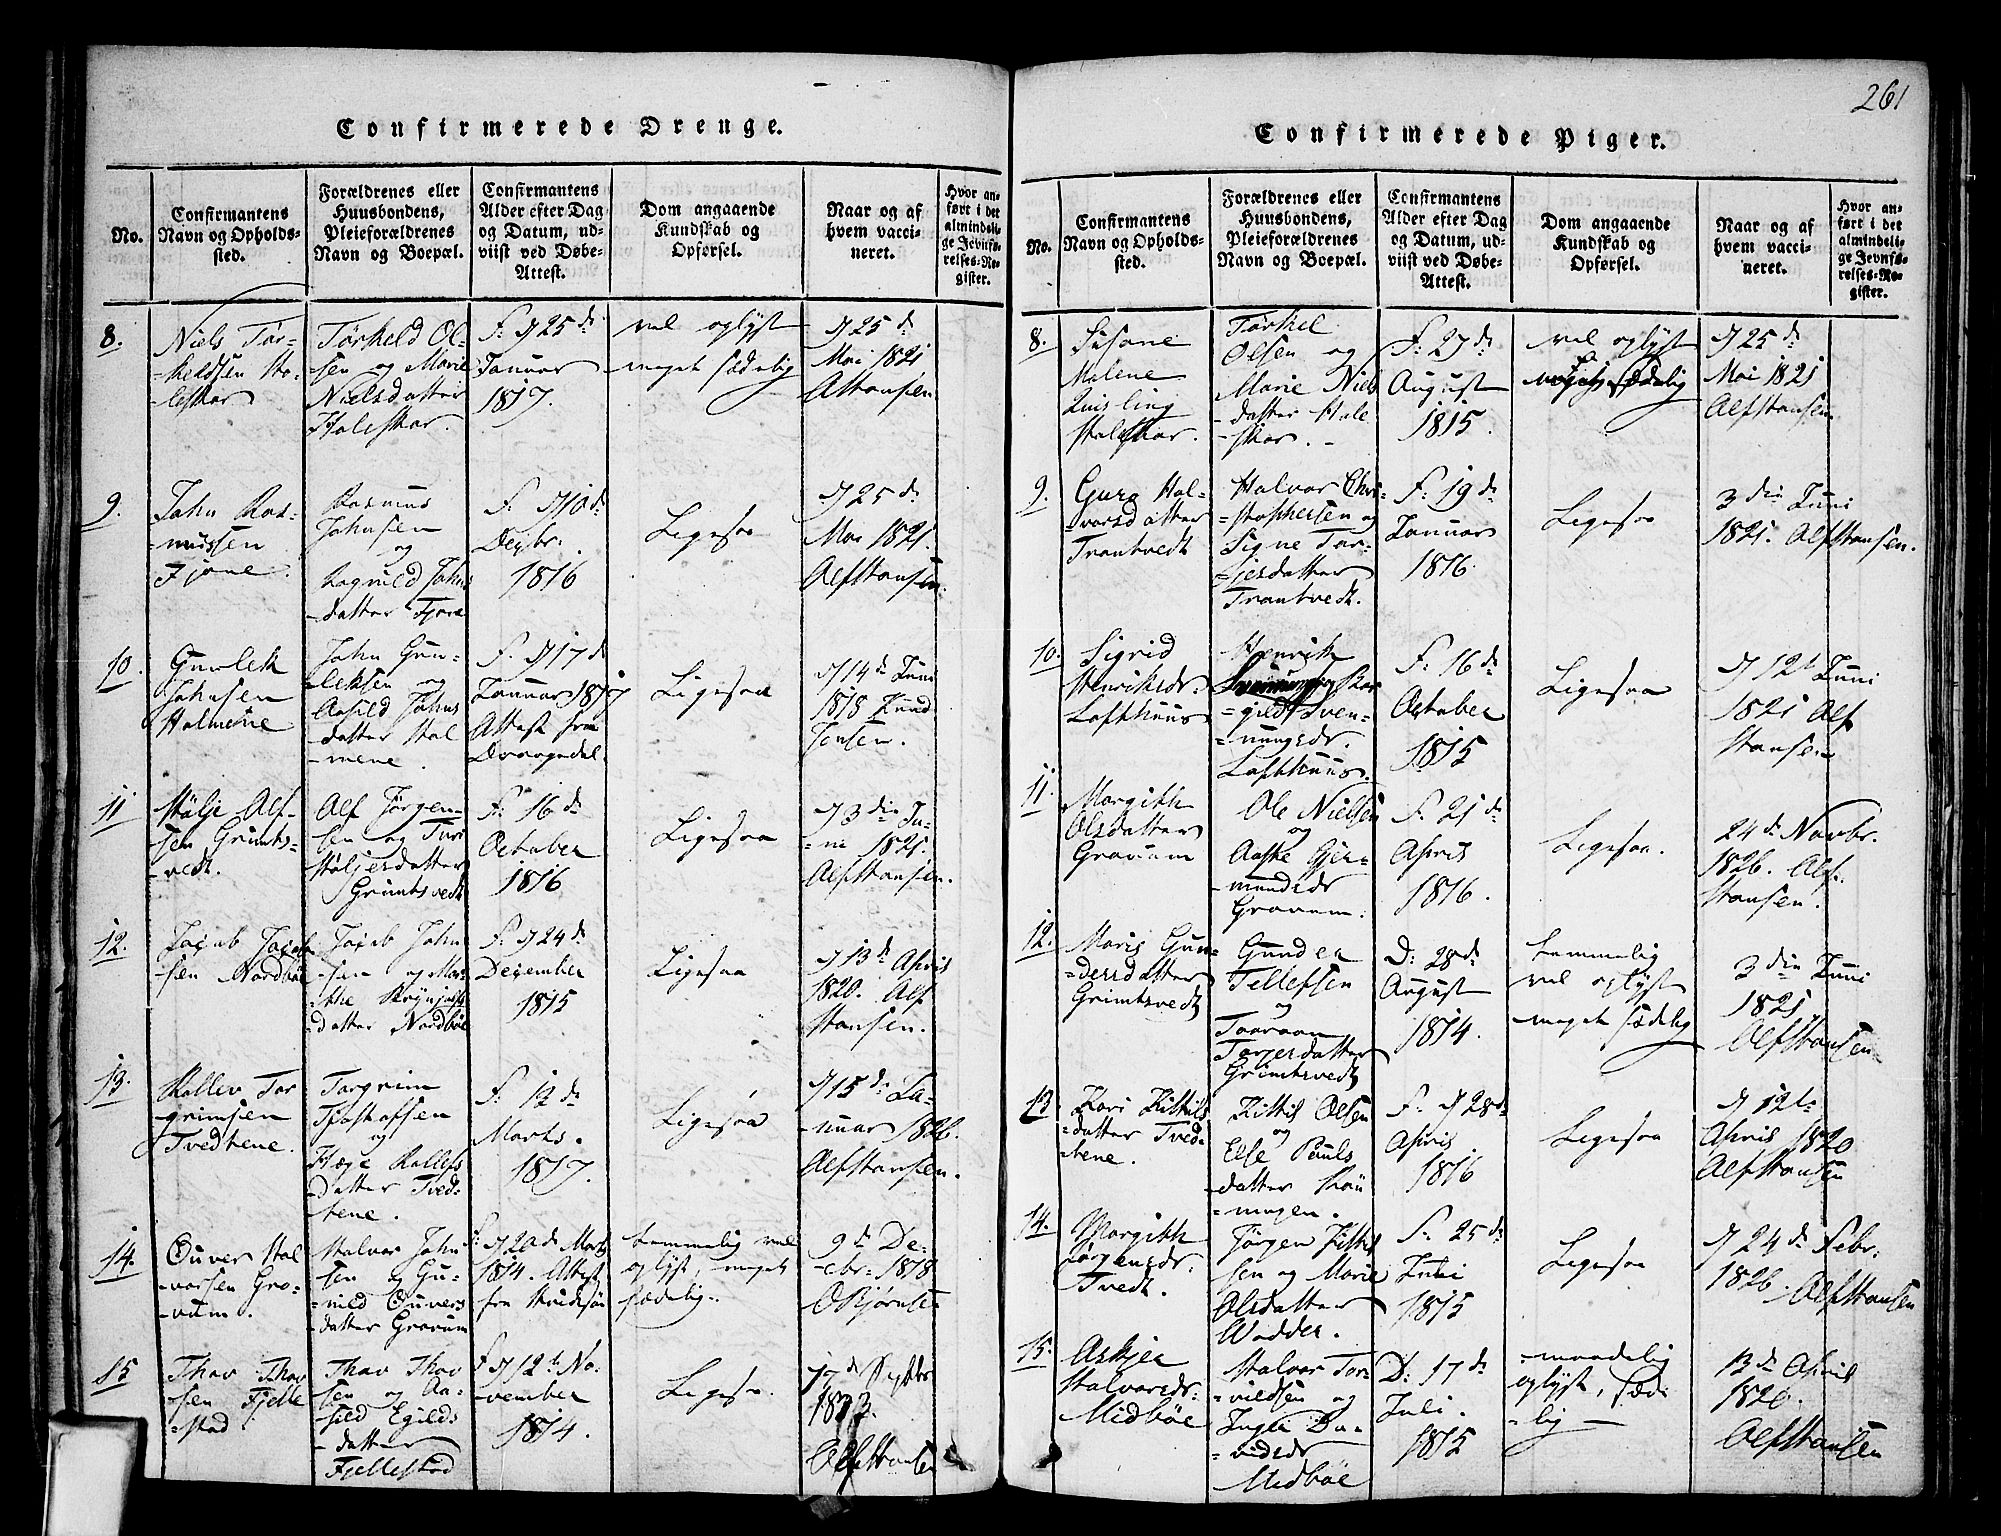 261
Confirmerede Drenge.
No.
Confirmantens Navn og Opholds-sted.
Forældrenes eller Huusbondens, Pleieforældrenes Navn og Boepæl.
Confirmantens Alder efter Dag og Datum, ud-viist ved Døbe-Attest.
Dom angaaende Kundskab og Opførsel.
Naar og af hvem vacci-neret.
Hvor an-ført i det almindeli-ge Jevnfø-relses-Re-gister.
8.
Niels Tor-
-keldsen Ha-
-leskar
Torkeld Ol-
sen og Marie
Nielsdatter
Haleskar.
F. d 25 de
Januar
1817.
vel oplyst
meget sædelig
d 25 de
Mai 1821
A Hansen
9.
John Ras-
-mussen
Fjone.
Rasmus
Johnsen
og
Ragnild Johns
-datter Fjone
F. d 10 de
Decbr.
1816
Ligesaa
d 25 de
Mai 1821.
Alf Hansen.
10.
Gunlek
Johnsen
Halmene
John Gun-
-leksen og
Aasild Johns
-datter Hal
-mene.
F. d 17 de
Januar 1817
Attest fra
Drangedal.
Ligesaa
d 14 de Juni
1818 Knud
Jensen.
11
Stålje Alf-
sen Grimts-
-vedt.
Alf Jörgen-
sen og Turi
Ståljesdatter
Grimtsvedt
F. 16 de
October
1816
Ligesaa
d 3 die Ju-
-ni 1821.
Alf Hansen.
12.
Jacob Jacob
-sen Nordbøe
Jacob John
-sen og Mar-
-the
-datter Nordbøe
F. d 24 de
December
1815
Ligesaa
d 13 de April
1820. Alf
Hansen.
13.
Rollev Tor
grimsen
Tvedtene.
Torgrim
Tjostolfsen
og
Hæge Rollefs
-datter Tved-
-tene.
F. 12 de
Marts.
1817.
Ligesaa
d 15 de Ja-
-nuar 1826.
Alf Hansen.
14.
Ouver Hal
vorsen Gro-
-vum.
Halvor John
sen og Gu-
-nild Ouvers
datter Grovum
F. d 20 de Marts
1814. Attest
fra
temmelig vel
oplyst, meget
sædelig.
9 de De-
-cbr. 1818
O Bjørnsen
15
Thov Thov
sen Fjelle
-stad
Thov Thov
sen og Aa-
sild Egilds
-datter
Fjellestad
F. d 12 te No-
vember
1814.
Ligesaa.
17 de Septbr
Alf Hansen
Confirmerede Piger.
No.
Confirmantens Navn og Opholds-sted.
Forældrenes eller Huusbondens, Pleieforældrenes Navn og Boepæl.
Confirmantens Alder efter Dag og Datum, ud-viist ved Døbe-Attest.
Dom angaaende Kundskab og Opførsel.
Naar og af hvem vacci-neret.
Hvor an-ført i det almindeli-ge Jevnfø-relses-Re-gister.
8.
Susane
Malene
Quisling
Haleskar.
Torkel
Olsen og
Marie Niels
-datter Hale
-skar.
F. 27 de
August
1815.
vel oplyst
meget sædelig
d 25 de
Mai 1821
Alf Hansen
9.
Guro Hal-
-vorsdatter
Trontvedt
Halvor Chri-
-stophersen og
Signe Tor-
-jersdatter
Trontvedt.
F. 19 de
Januar
1816.
Ligesaa
3 die Juni
1821. Alf Hansen.
10.
Sigrid
Henriksdr.
Lofthuus
Henrik
og Kar
-gild Sven-
-nungsdr.
Lofthuus.
F. 16 de
October
1815
Ligesaa
d 12 te Juni
1821 Alf
Hansen
11.
Margith
Olsdatter
Grovum
Ole Nielsen
og
Aaste Gjer-
-mundsdr
Grovum.
F. 21 de
April
1816.
Ligesaa.
24 de Novbr.
1826. Alf
Hansen.
12.
Maris Gun-
-dersdatter
Grimtsvedt
Gunder
Tellefsen
og
Taaraan
Torjersdatter
Grimtsvedt
D. 28 de
August
1814.
temmelig
vel oplyst
meget sædelig
3 die Juni
1821
Alf Hansen
13
Kari Kittils
-datter Tved-
-tene.
Kittil Olsen
og
Else Pauls
-datter Røn
-mogen.
F. d 28 de
April
1816
Ligesaa
d 12 te
April 1820
Alf Hansen
14.
Margith
Jörgensdr.
Tvedt.
Jörgen Kittil
sen og Marie
Olsdatter
Wadder.
F. 25 de
Juli
1815
Ligesaa
d 24 de Febr.
1826. Alf Hansen
15.
Askjer
Halvorsdr.
Midbøe
Halvor Tor-
-vildsen og
Ingli Da-
-vidsdr
Midbøe
D. 17 de
Juli.
1815
-maadelig
oplyst, sæd-
-lig
13 de April
1820.
Alf Hansen